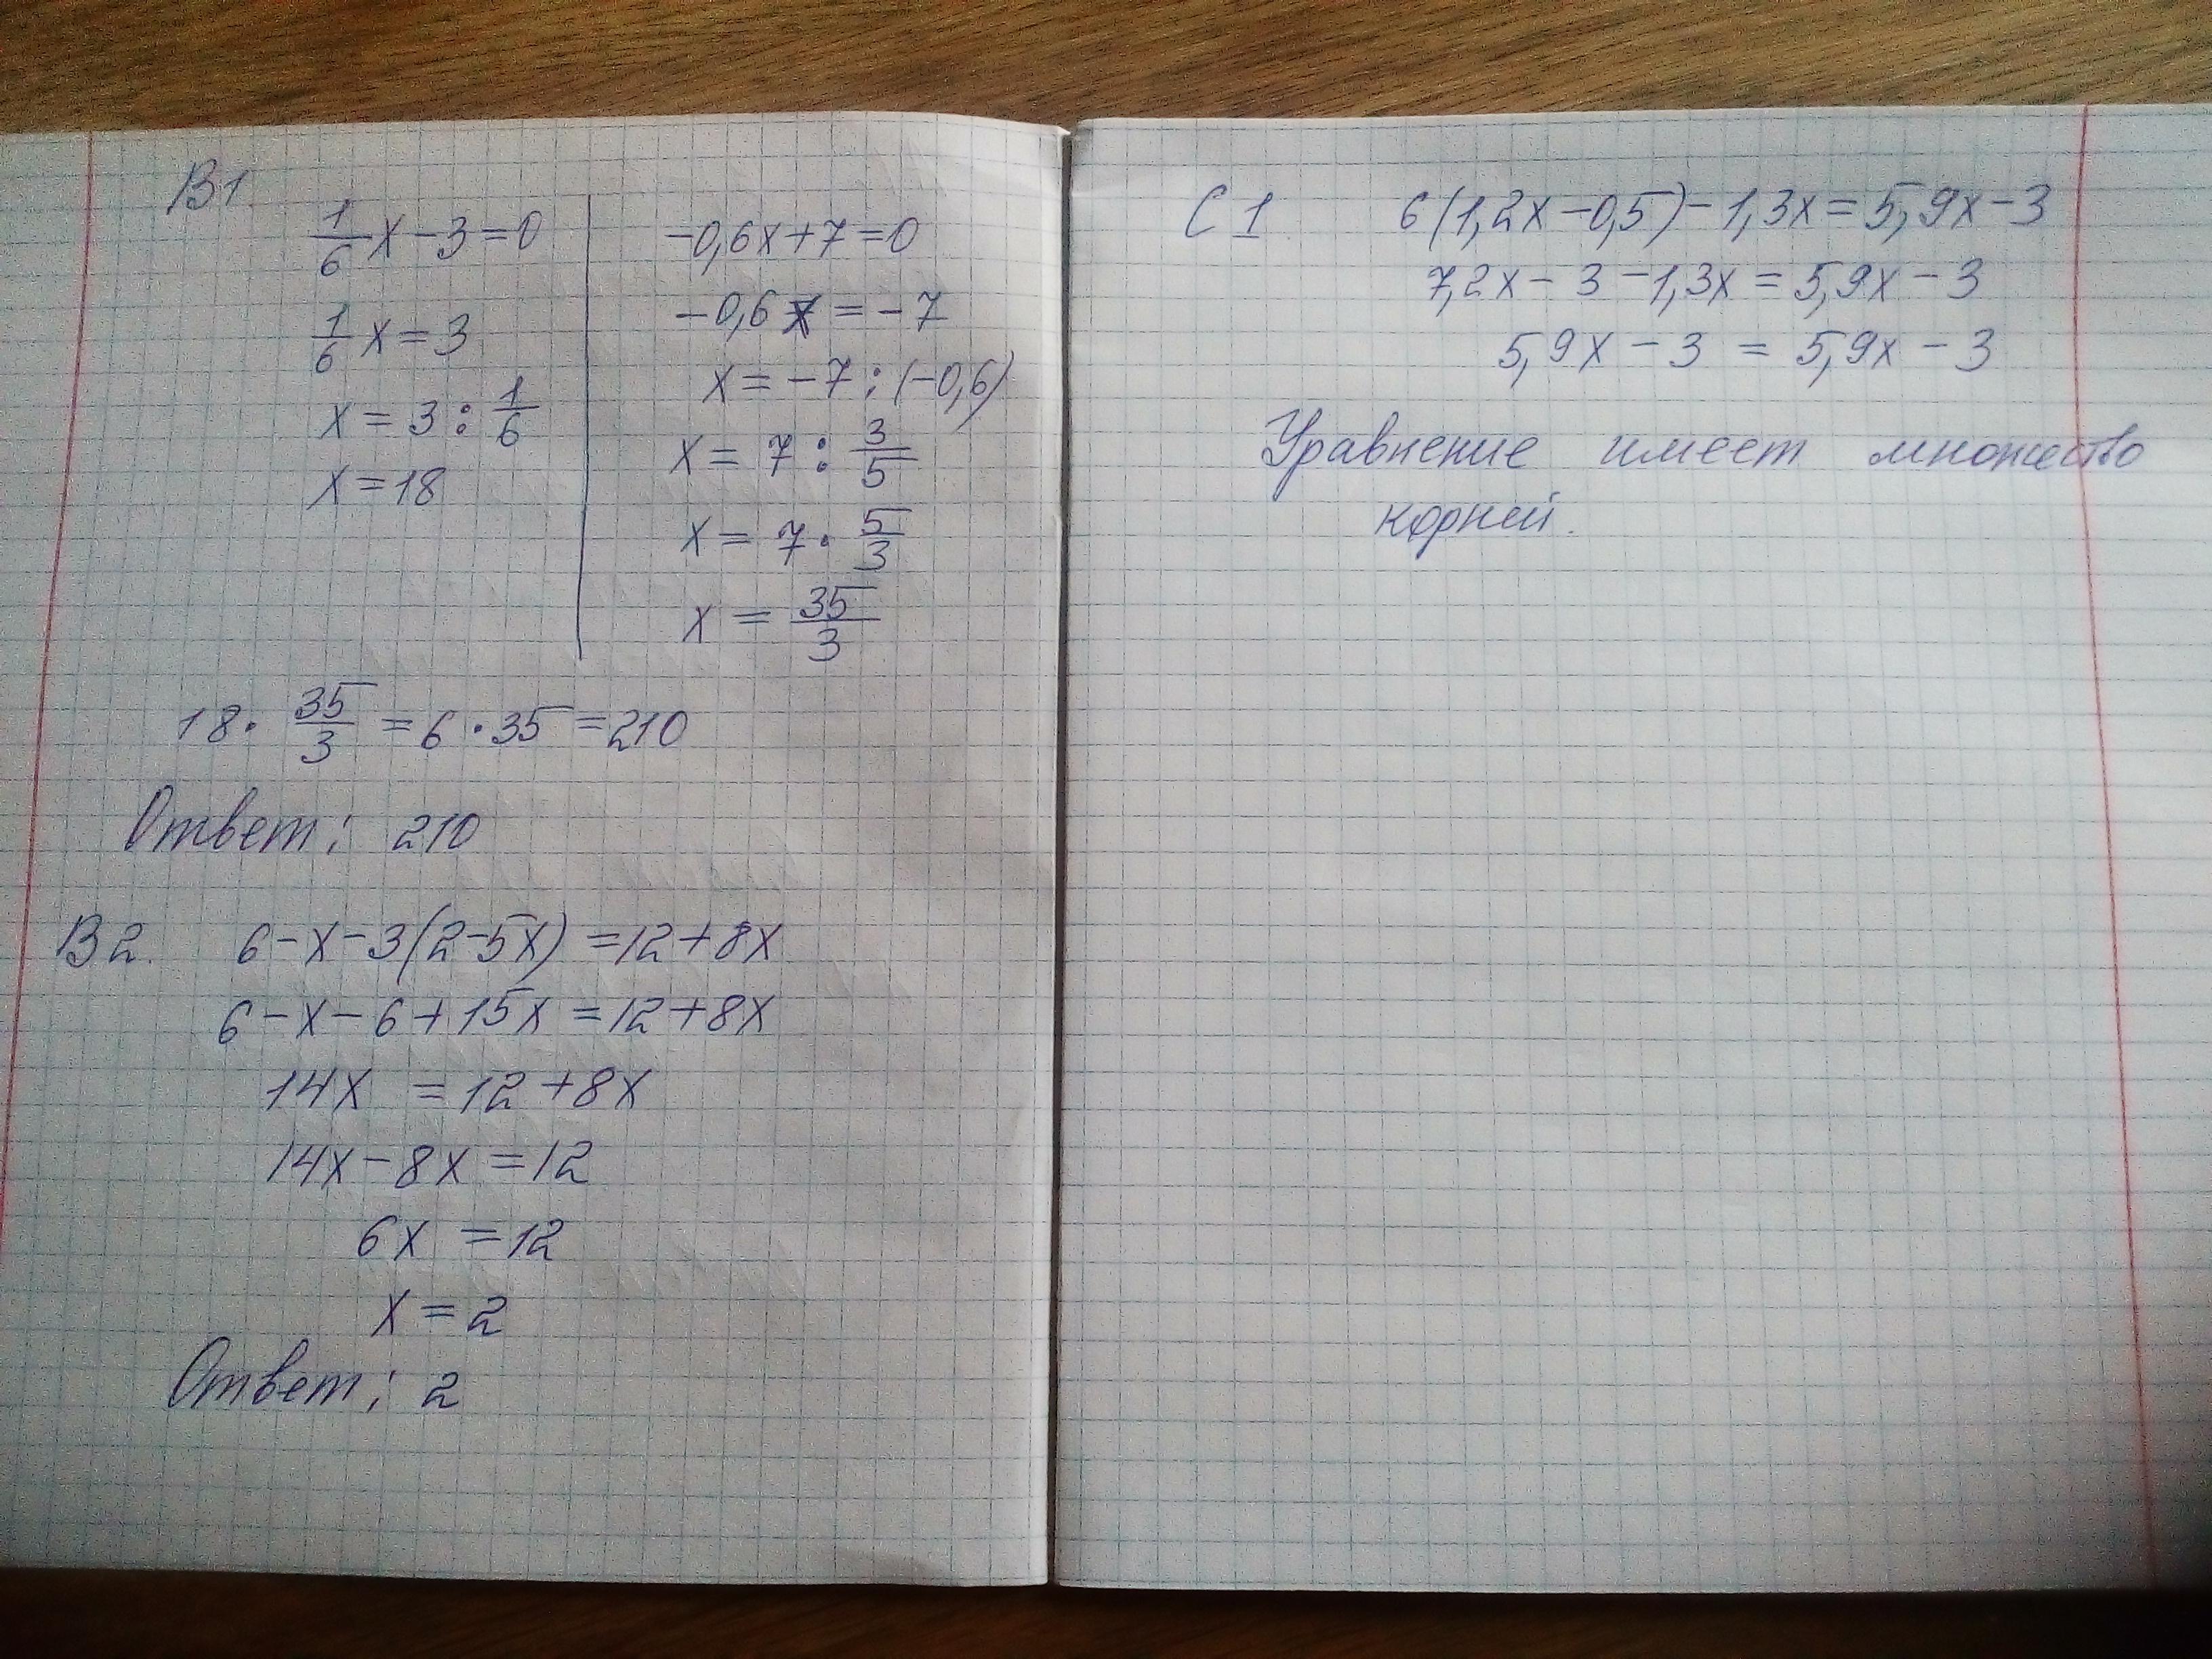 B1.
1/6 x - 3 = 0
1/6 x = 3
x = 3 : 1/6
x = 18
-0,6x + 7 = 0
-0,6x = -7
x = -7 : (-0,6)
x = 7 : 3/5
x = 7 · 5/3
x = 35/3
18 · 35/3 = 6 · 35 = 210
Ответ: 210
B2. 6 - x - 3(2 - 5x) = 12 + 8x
6 - x - 6 + 15x = 12 + 8x
14x = 12 + 8x
14x - 8x = 12
6x = 12
x = 2
Ответ: 2
C1. 6(1,2x - 0,5) - 1,3x = 5,9x - 3
7,2x - 3 - 1,3x = 5,9x - 3
5,9x - 3 = 5,9x - 3
Уравнение имеет множество
корней.